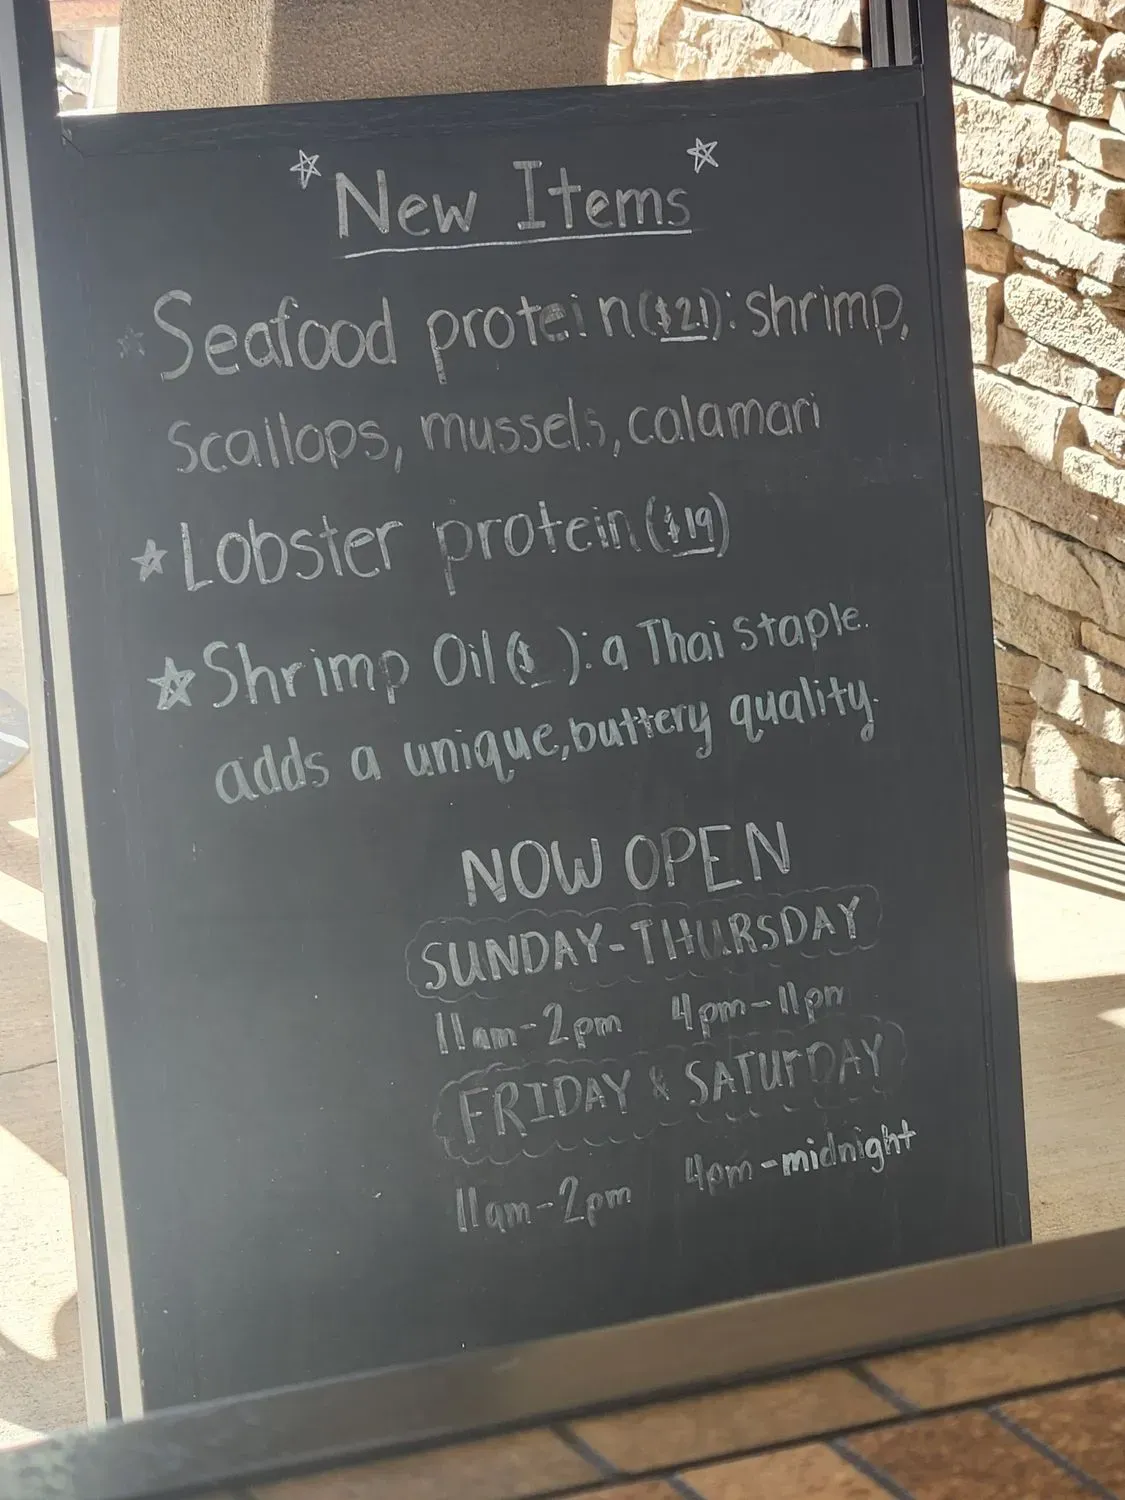 New Items
Seafood protein($21): shrimp,
Scallops, mussels, calamari
Lobster protein($19)
Shrimp Oil($ ): a Thai staple.
adds a unique, buttery quality.
NOW OPEN
SUNDAY-THURSDAY
11am-2pm 4pm-11pm
FRIDAY & SATURDAY
11am-2pm 4pm-midnight